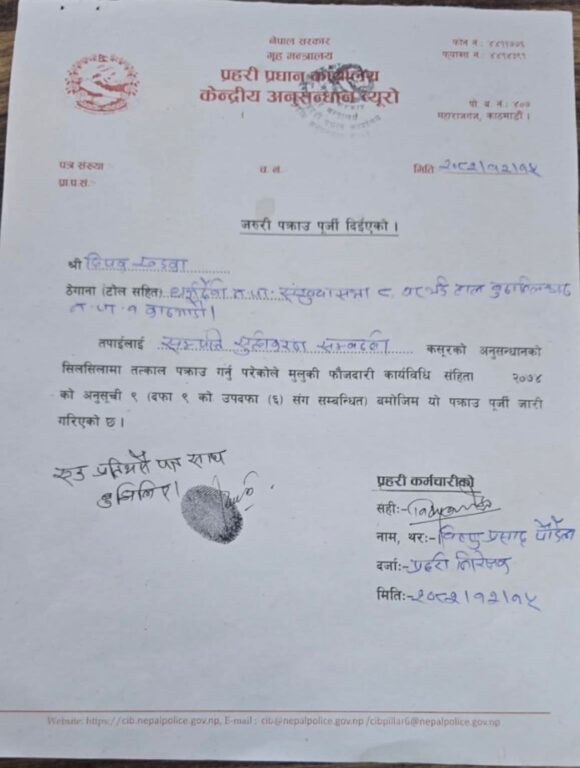 नेपाल सरकार
गृह मन्त्रालय
प्रहरी प्रधान कार्यालय
केन्द्रीय अनुसन्धान ब्यूरो
फोन नं :
फ्याक्स नं :
पो.ब.नं.: ४०७
महाराजगंज, काठमाडौं ।
पत्र संख्या
प्रा.प.सं.
च.नं.
मिति २०८२/१२/१५
जरुरी पक्राउ पूर्जी दिईएको ।
श्री दिपक
ठेगाना (टोल सहित) धर्मदेवी न.पा. संखुवासभा ८ घर भई हाल
न.पा. काठमाडौं।
तपाईलाई सम्पत्ति शुद्धिकरण सम्बन्धी कसुरको अनुसन्धानको
सिलसिलामा तत्काल पक्राउ गर्नु परेकोले मुलुकी फौजदारी कार्यविधि संहिता २०७४
को अनुसूची ९ (दफा ९ को उपदफा (६) संग सम्बन्धित) बमोजिम यो पक्राउ पूर्जी जारी
गरिएको छ ।
एक प्रति मैले पत्र साथ
बुझिलिए।
प्रहरी कर्मचारीको
सही:-
नाम, थर:- विष्णु प्रसाद पौडेल
दर्जा:- प्रहरी निरीक्षक
मिति:- २०८२/१२/१५
Website: https://cib.nepalpolice.gov.np, E-mail : cib@nepalpolice.gov.np /cibpillar6@nepalpolice.gov.np